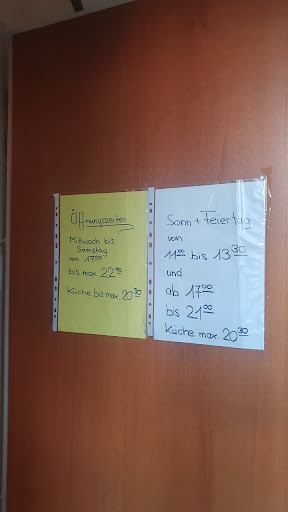 Öffnungszeiten
Mittwoch bis
Samstag
von 17⁰⁰
bis max. 22⁰⁰
Küche bis max. 20³⁰
Sonn + Feiertag
von
11⁰⁰ bis 13³⁰
und
ab 17⁰⁰
bis 21⁰⁰
Küche max. 20³⁰